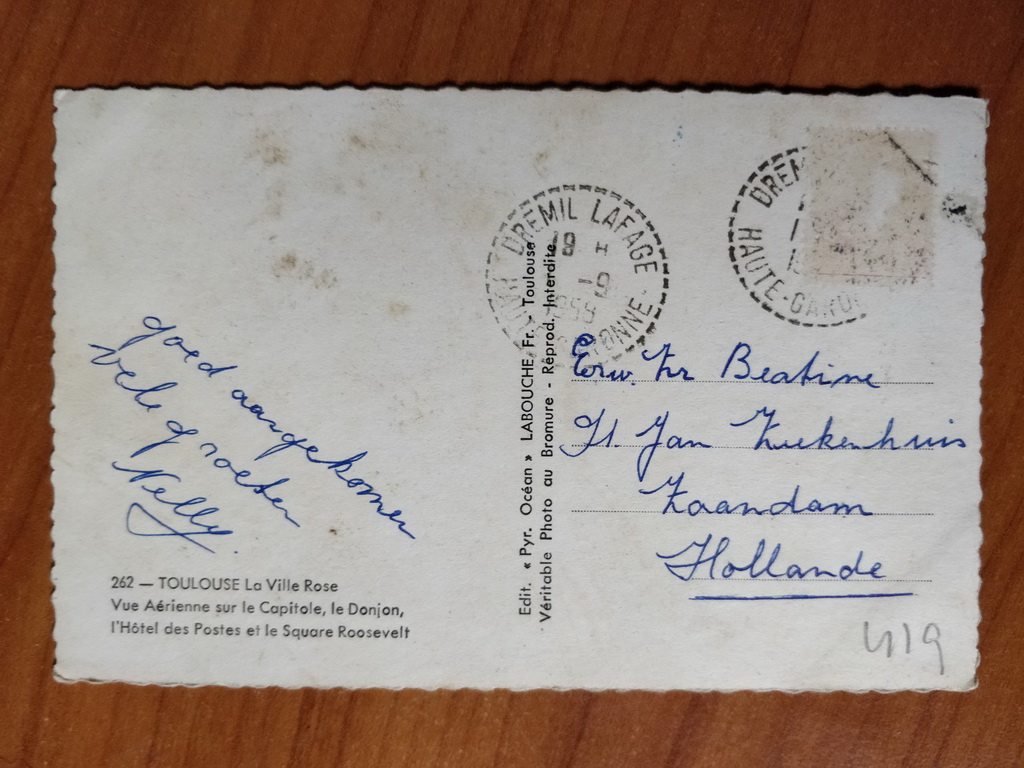 goed aangekomen
Vele groeten
Nelly.
262 — TOULOUSE La Ville Rose
Vue Aérienne sur le Capitole, le Donjon,
l'Hôtel des Postes et le Square Roosevelt
Edit. « Pyr. Océan » LABOUCHE, Fr. - Toulouse
Véritable Photo au Bromure - Réprod. Interdite
DREMIL LAFAGE
18 H
-9
HAUTE-GARONNE
DREM
HAUTE-GARO
Eerw. Zr Beatine
St. Jan Ziekenhuis
Zaandam
Hollande
419